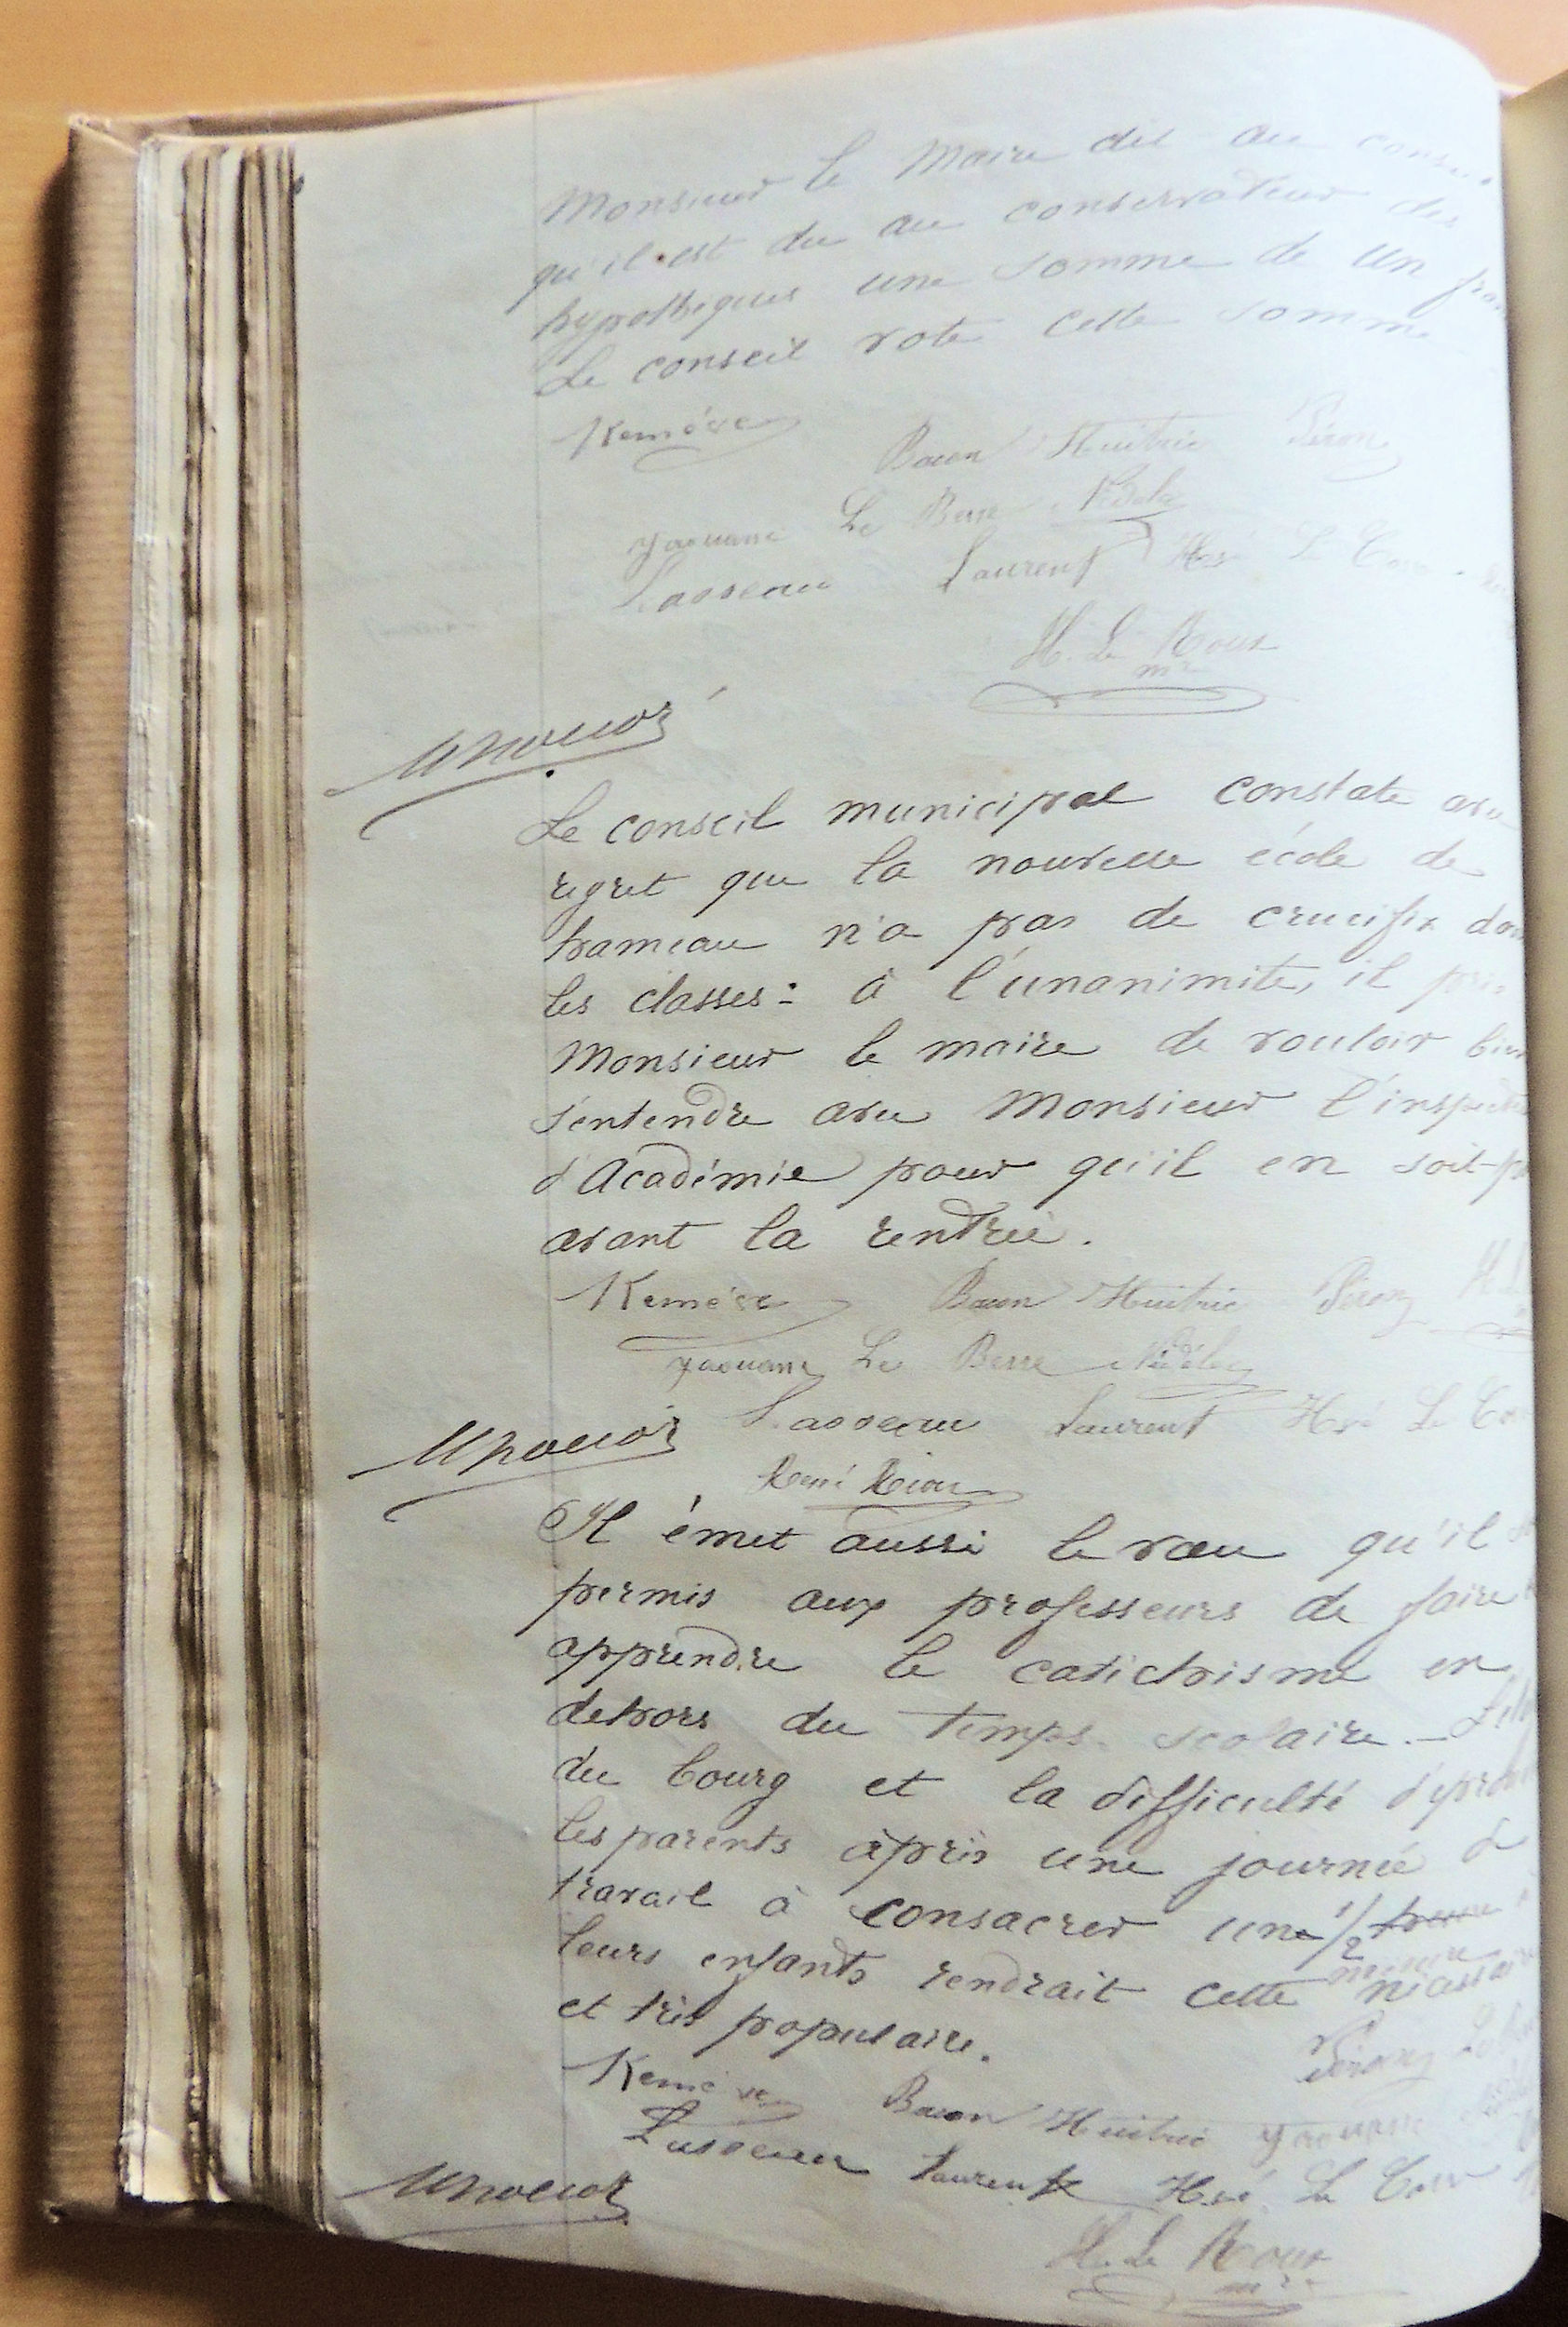 Monsieur le Maire dit au
qu'il est du au conservateur des
hypotheques une somme de un
Le conseil vote cette somme
Bacon Huitric Péron
yaouanc Le Berre Nédelec
Lasseau Laurent Hré Le
H. Le Roux
Le conseil municipal constate avec
regret que la nouvelle école de
hameau n'a pas de crucifix dans
les classes: à l'unanimité, il
Monsieur le maire de vouloir bien
s'entendre avec Monsieur l'inspecteur
d'Académie pour qu'il en soit
avant la rentrée.
Bacon Huitric Péron
yaouanc Le Berre Nédélec
Lasseau Laurent Hré Le
René Riou
Il émet aussi le vœu qu'il
permis aux professeurs de faire
apprendre le catéchisme en
dehors du temps scolaire. –
du bourg et la difficulté
les parents après une journée
travail à consacrer une 1/2
leurs enfants rendrait cette mesure nécessaire
et très populaire.
Péron
Bacon Huitric yaouanc
Lasseau Laurent Hré Le
H. Le Roux